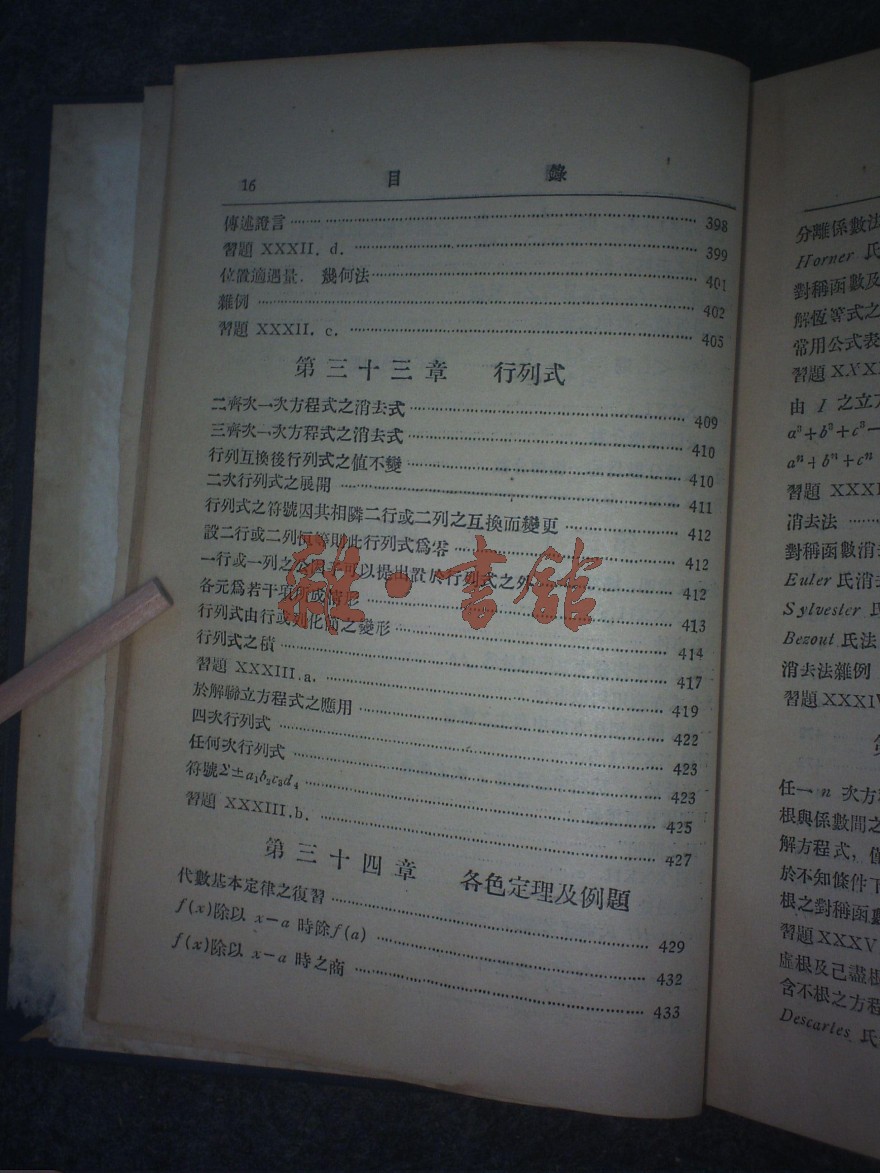 16 目 錄
傳述證言 398
習題 XXXII. d. 399
位置適遇量. 幾何法 401
雜例 402
習題 XXXII. c. 405
第三十三章 行列式
二齊次一次方程式之消去式 409
三齊次一次方程式之消去式 410
行列互換後行列式之値不變 410
二次行列式之展開 411
行列式之符號因其相隣二行或二列之互換而變更 412
設二行或二列恆等則此行列式爲零 412
一行或一列之公因子可以提出置於行列式之外 412
各元爲若干項所成情形 413
行列式由行或列化簡之變形 414
行列式之積 417
習題 XXXIII.a. 419
於解聯立方程式之應用 422
四次行列式 423
任何次行列式 423
符號Σ±a₁b₂c₃d₄ 425
習題 XXXIII.b. 427
第三十四章 各色定理及例題
代數基本定律之復習 429
f(x)除以 x－a 時餘f(a) 432
f(x)除以 x－a 時之商 433
雜·書館
分離係數法
Horner 氏
對稱函數及
解恆等式之
常用公式表
習題 XXXI
由 1 之立方
a³+b³+c³－
aⁿ+bⁿ+cⁿ
習題 XXXI
消去法
對稱函數消
Euler 氏消
Sylvester 氏
Bezout 氏法
消去法雜例
習題 XXXIV
任一 n 次方
根與係數間之
解方程式, 僅
於不知條件下
根之對稱函數
習題 XXXV
虛根及己盡根
含不根之方程
Descartes 氏